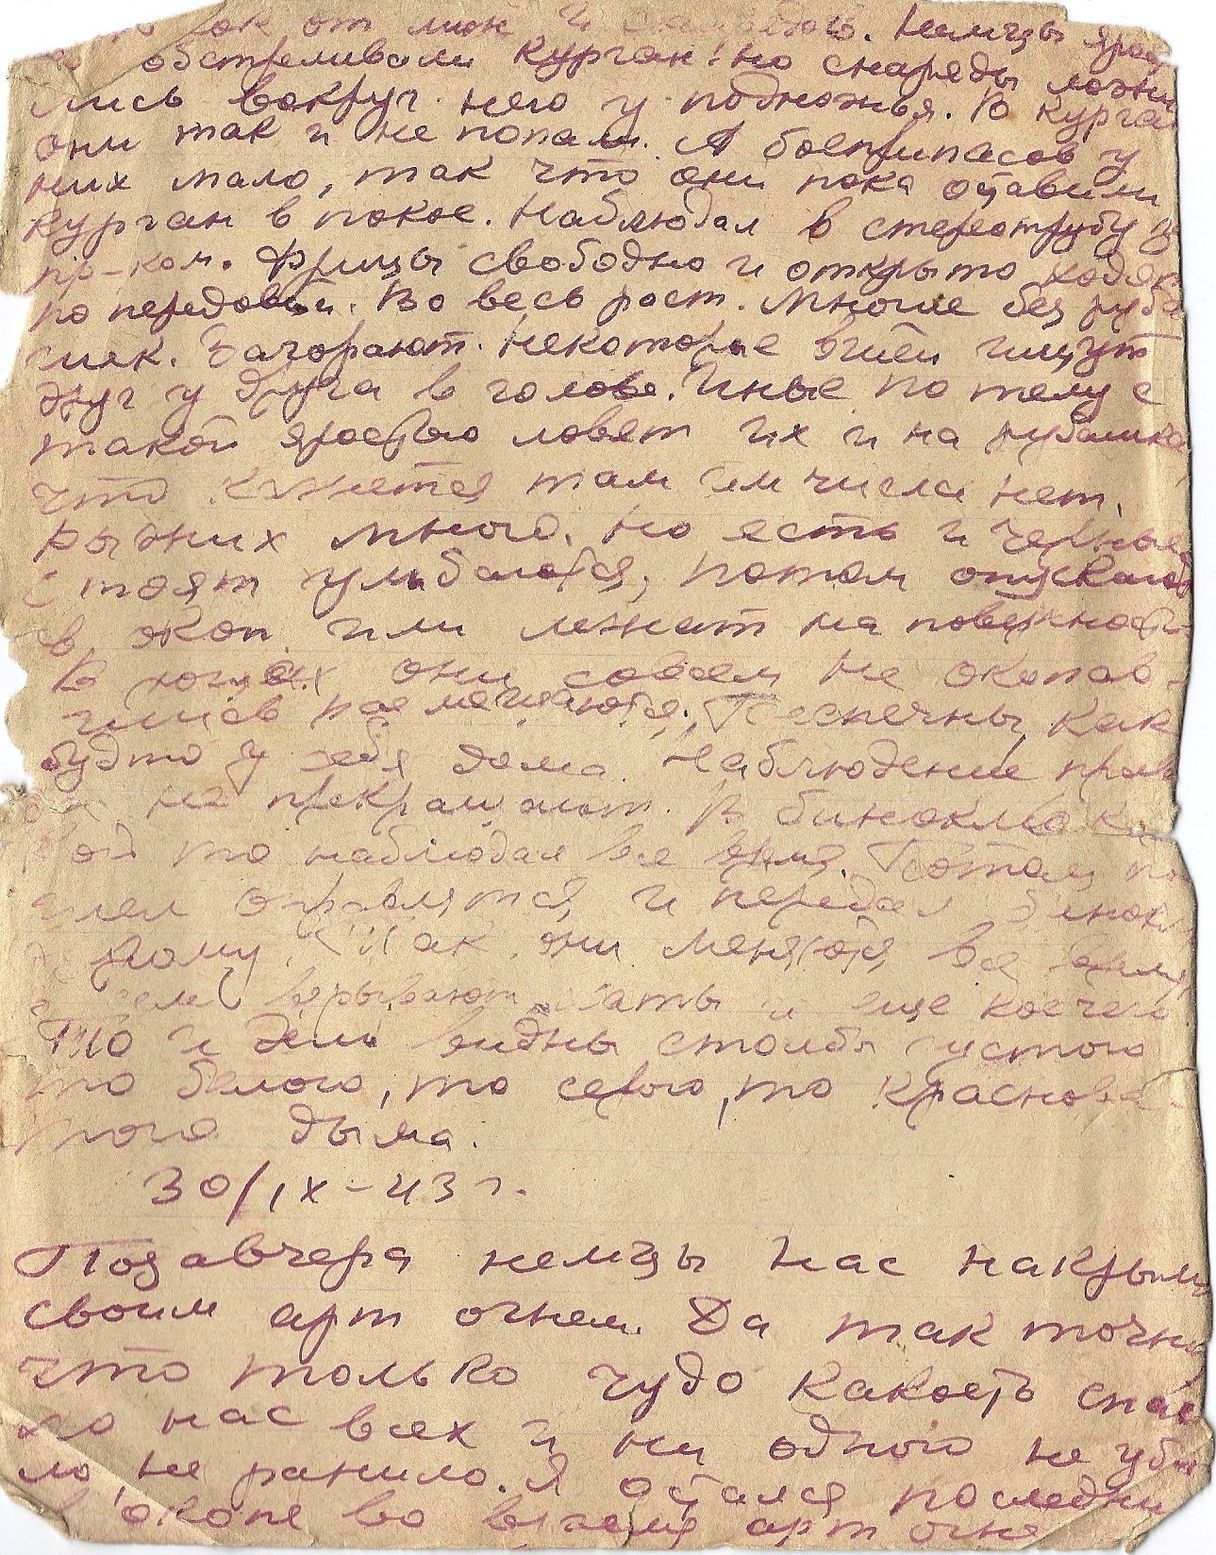 от мин и Немцы ярос
обстреливали курган! но снаряды ложи
лись вокруг него у подножья. В курган
они так и не попали. А боеприпасов у
них мало, так что они пока оставили
курган в покое. Наблюдал в стереотрубу за
пр-ком. Фрицы свободно и открыто ходят
по передовой. Во весь рост. Многие без руба
шек. Загорают. Некоторые вшей ищут
друг у друга в голове. Иные по телу с
такой яростью ловят их и на рубашках,
что кажется там им числа нет.
рыжих много. Но есть и черные
Стоят улыбаются, потом опускаются
в окоп или лежат на поверхности
В они совсем не окопав-
шись размещаются. Беспечны, как
будто у себя дома. Наблюдение
не прекращают. В бинокль
то наблюдал все время. Потом по
шел оправлятся и передал бинокль
другому. Так они меняются все время,
взрывают хаты и еще кое че
то и дым видны столбы густого
то белого, то серого, то краснова-
того дыма.
30/IX-43 г.
Позавчера немцы нас накрыли
своим арт огнем. Да так точно
что только чудо какоеть спас
ло нас всех и ни одного не уби
ло, не ранило. Я остался последний
в окопе во время арт огня